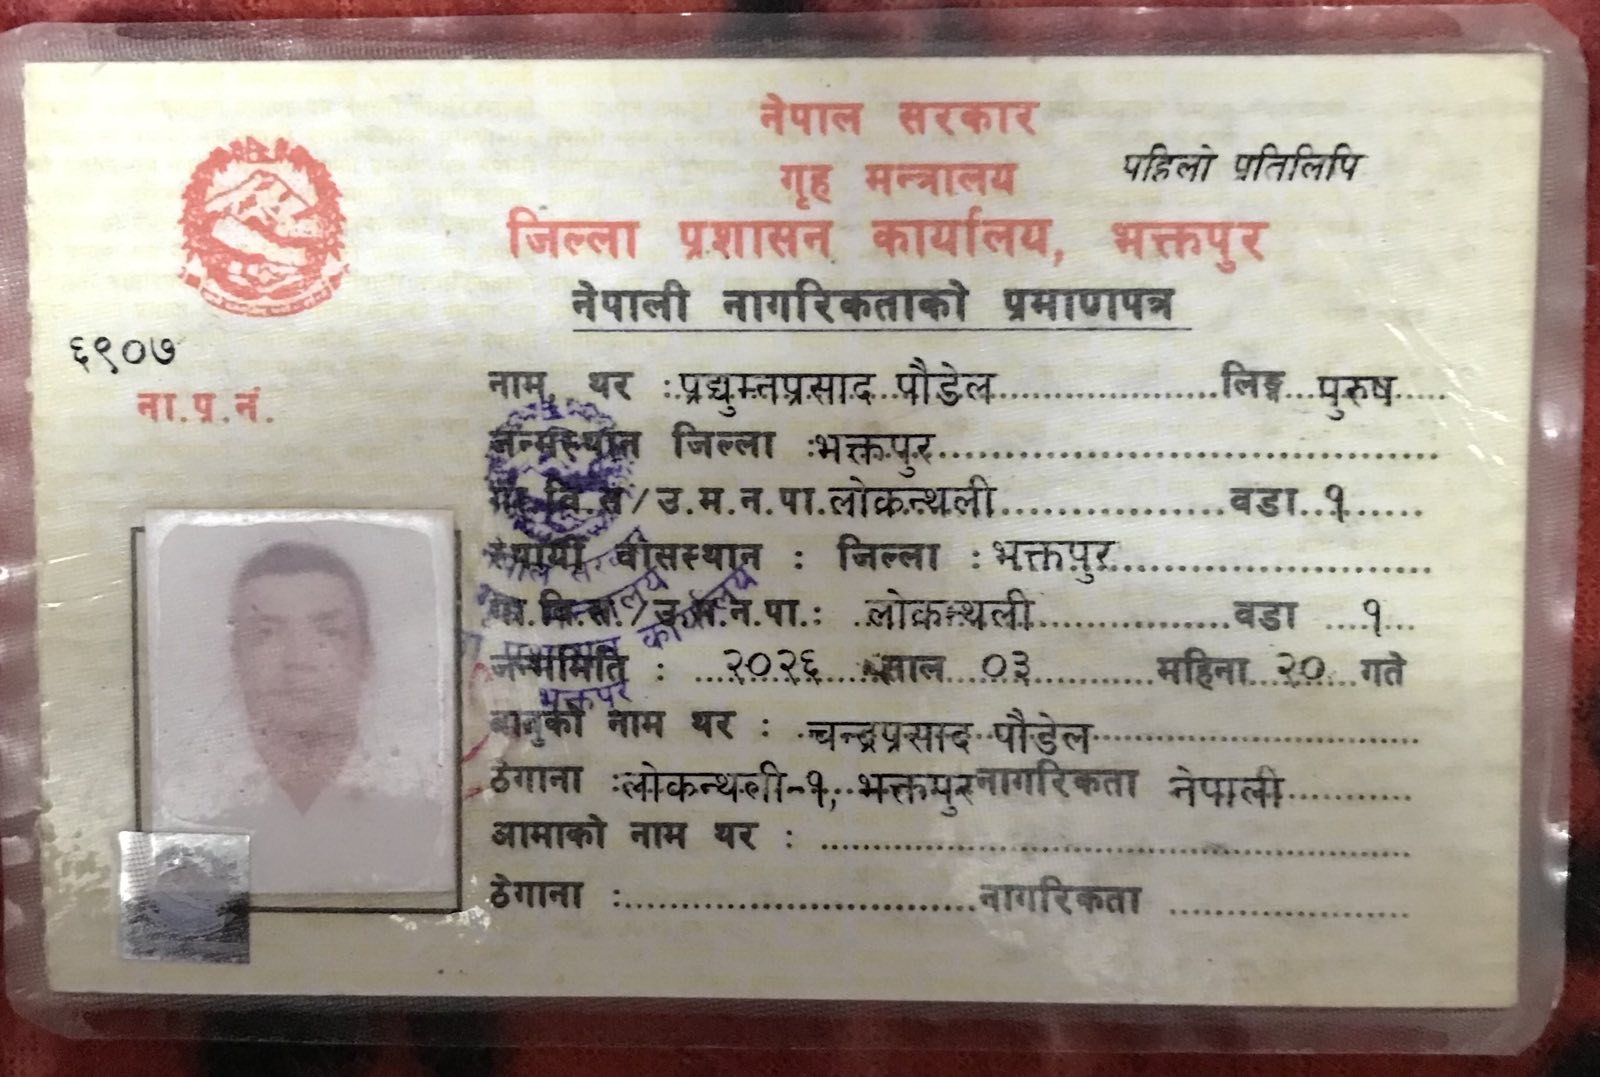 नेपाल सरकार
गृह मन्त्रालय
पहिलो प्रतिलिपि
जिल्ला प्रशासन कार्यालय, भक्तपुर
नेपाली नागरिकताको प्रमाणपत्र
६९०७
ना.प्र.नं.
नाम, थर : प्रद्युम्नप्रसाद पौडेल लिङ्ग पुरुष
जन्मस्थान जिल्ला : भक्तपुर
गा.वि.स/उ.म.न.पा. लोकन्थली वडा १
स्थायी वासस्थान : जिल्ला : भक्तपुर
गा.वि.स./उ.म.न.पा.: लोकन्थली वडा १
जन्ममिति : २०२६ साल ०३ महिना २० गते
बाबुको नाम थर : चन्द्रप्रसाद पौडेल
ठेगाना : लोकन्थली-१, भक्तपुर नागरिकता नेपाली
आमाको नाम थर :
ठेगाना : नागरिकता
कार्यालय
भक्तपुर